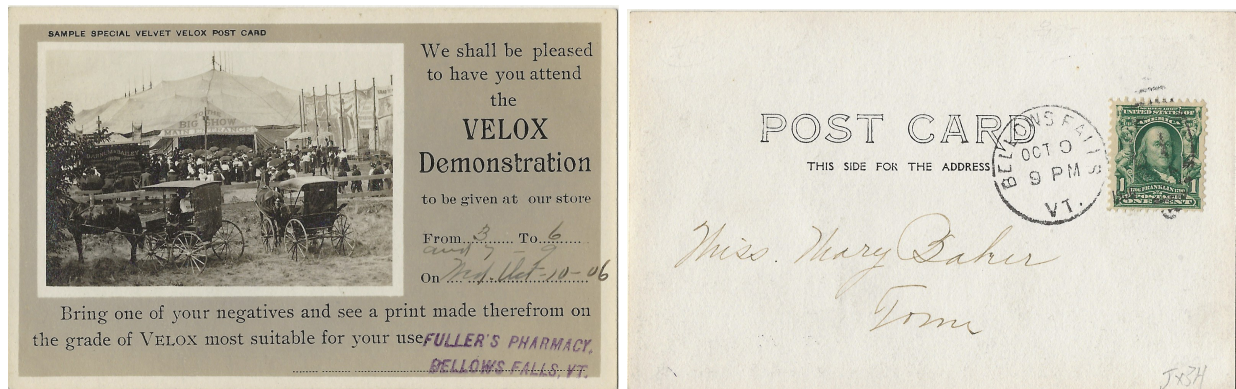 SAMPLE SPECIAL VELVET VELOX POST CARD
THE
BIG SHOW
MAIN ENTRANCE
We shall be pleased
to have you attend
the
VELOX
Demonstration
to be given at our store
From 3 To 6
and 7 - 9
On Wed. Oct-10-06
Bring one of your negatives and see a print made therefrom on
the grade of VELOX most suitable for your use
FULLER'S PHARMACY,
BELLOWS FALLS, VT.
POST CARD
THIS SIDE FOR THE ADDRESS
BELLOWS FALLS
OCT 9
9 PM
VT.
UNITED STATES OF
AMERICA
1 1
POSTAGE
ONE CENT
Miss. Mary Baker
Town